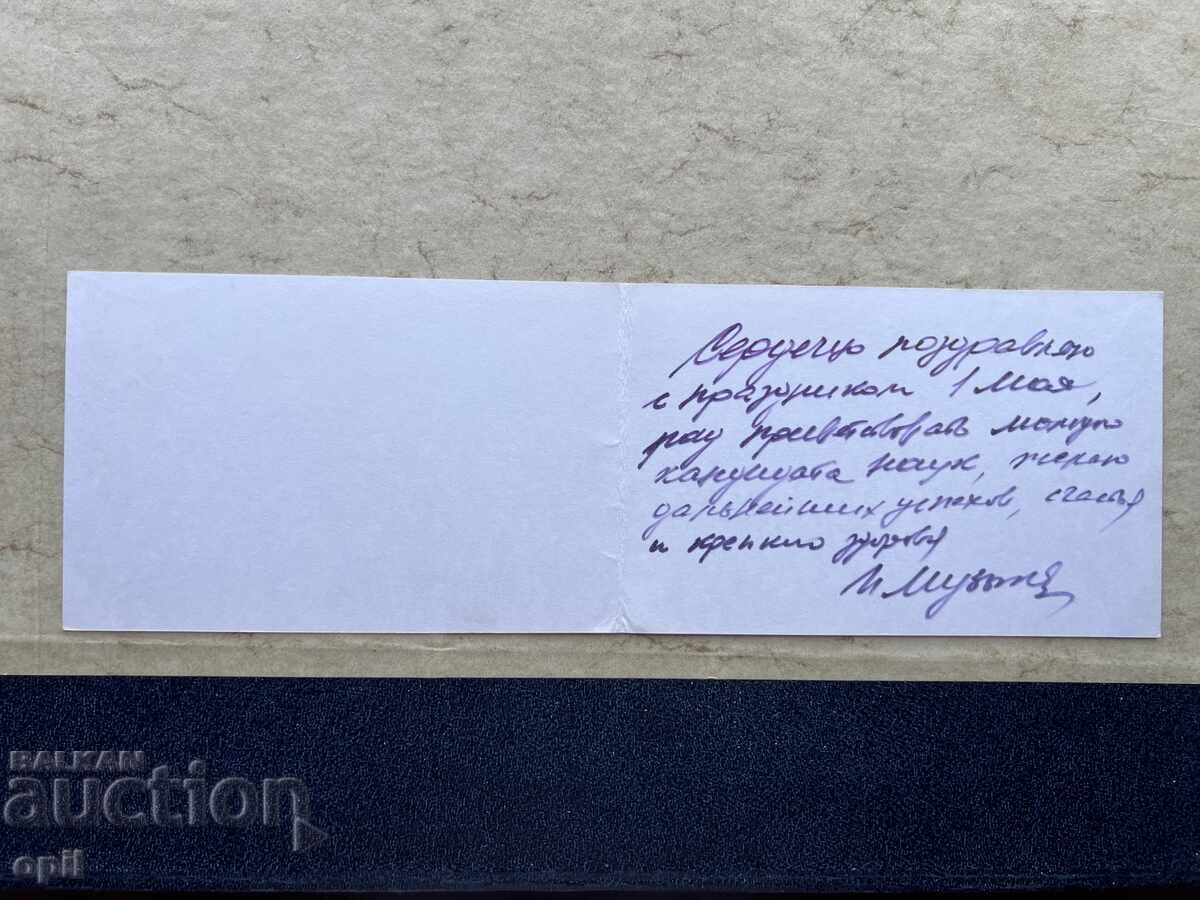 Сердечно поздравляю
с праздником 1 Мая,
рад приветствовать молодого
кандидата наук, желаю
дальнейших успехов, счастья
и крепкого здоровья
И
BALKAN
auction
opil